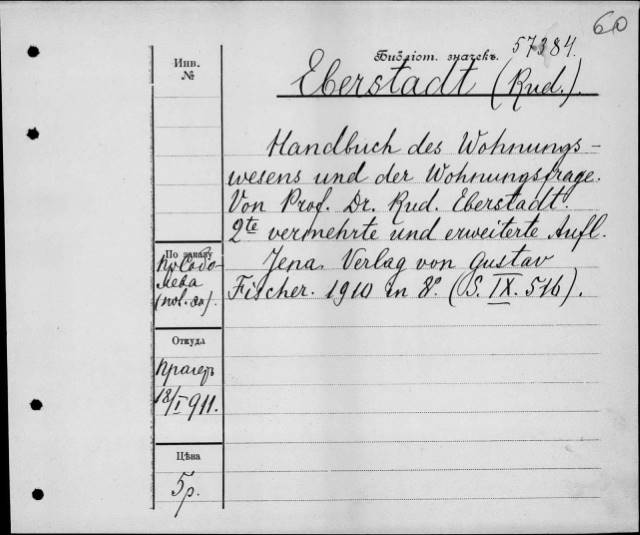 60
57384.
Библіот. значекъ.
Eberstadt (Rud.).
Инв.
№
Handbuch des Wohnungs-
wesens und der Wohnungsfrage.
Von Prof. Dr. Rud. Eberstadt.
2te vermehrte und erweiterte Aufl.
Jena. Verlag von Gustav
Fischer. 1910 in 8º. (S. IX. 516).
По заказу
лева
Откуда
Прагеръ
18/I 911.
Цѣна
5р.